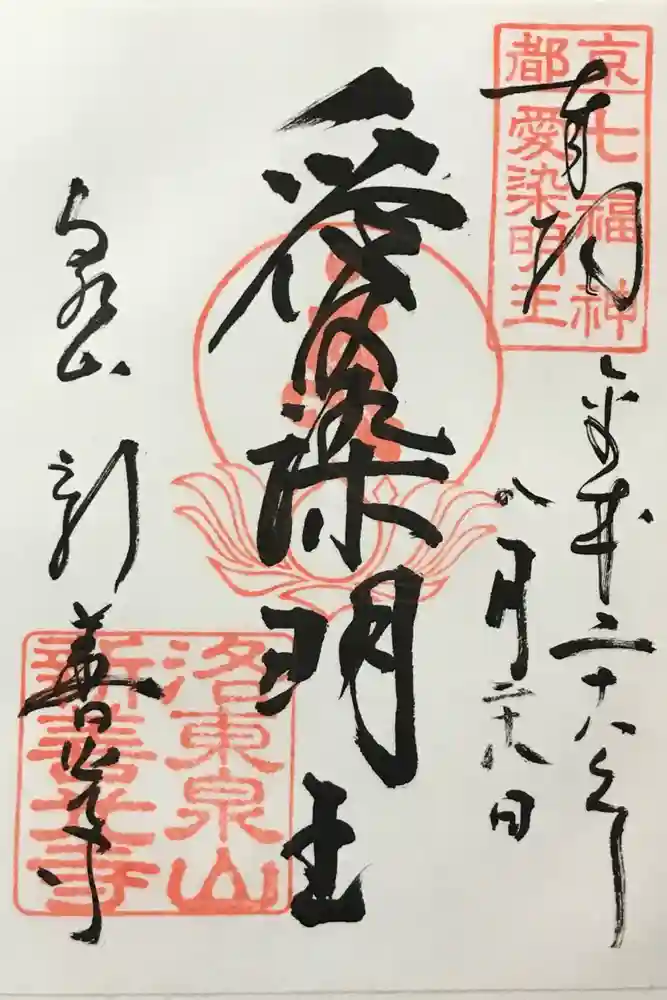 京都
七福神
愛染明王
奉拝
平成二十八年
八月二十八日
愛染明王
泉山 新善光寺
洛東泉山
新善光寺